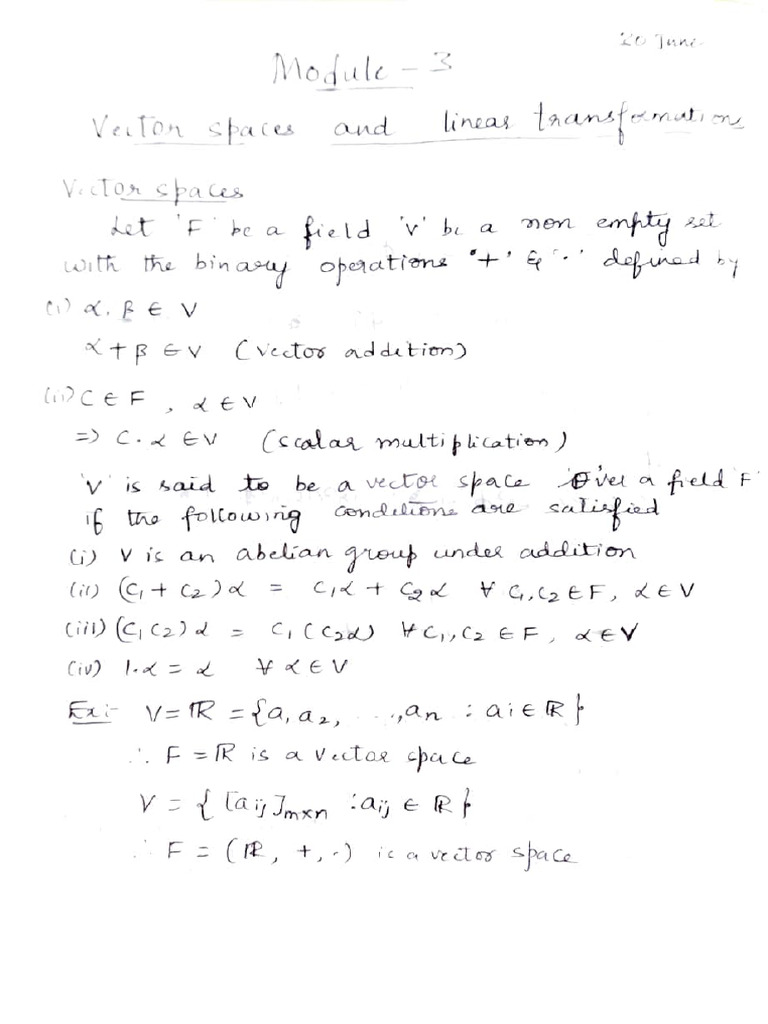 20 June
Module - 3
Vector spaces and linear transformations
Vector spaces
Let 'F' be a field 'V' be a non empty set
with the binary operations '+' & '.' defined by
(i) α, β ∈ V
α + β ∈ V (vector addition)
(ii) C ∈ F , α ∈ V
=> C.α ∈ V (scalar multiplication)
'V' is said to be a vector space over a field 'F'
if the following conditions are satisfied
(i) V is an abelian group under addition
(ii) (C₁ + C₂)α = C₁α + C₂α ∀ C₁,C₂ ∈ F, α ∈ V
(iii) (C₁ C₂)α = C₁(C₂α) ∀ C₁,C₂ ∈ F, α ∈ V
(iv) 1.α = α ∀ α ∈ V
Ex:- V = ℝ = {a₁ a₂, ...,an : ai ∈ ℝ}
∴ F = ℝ is a vector space
V = {[aij]m×n : aij ∈ ℝ}
∴ F = (ℝ, +, .) is a vector space